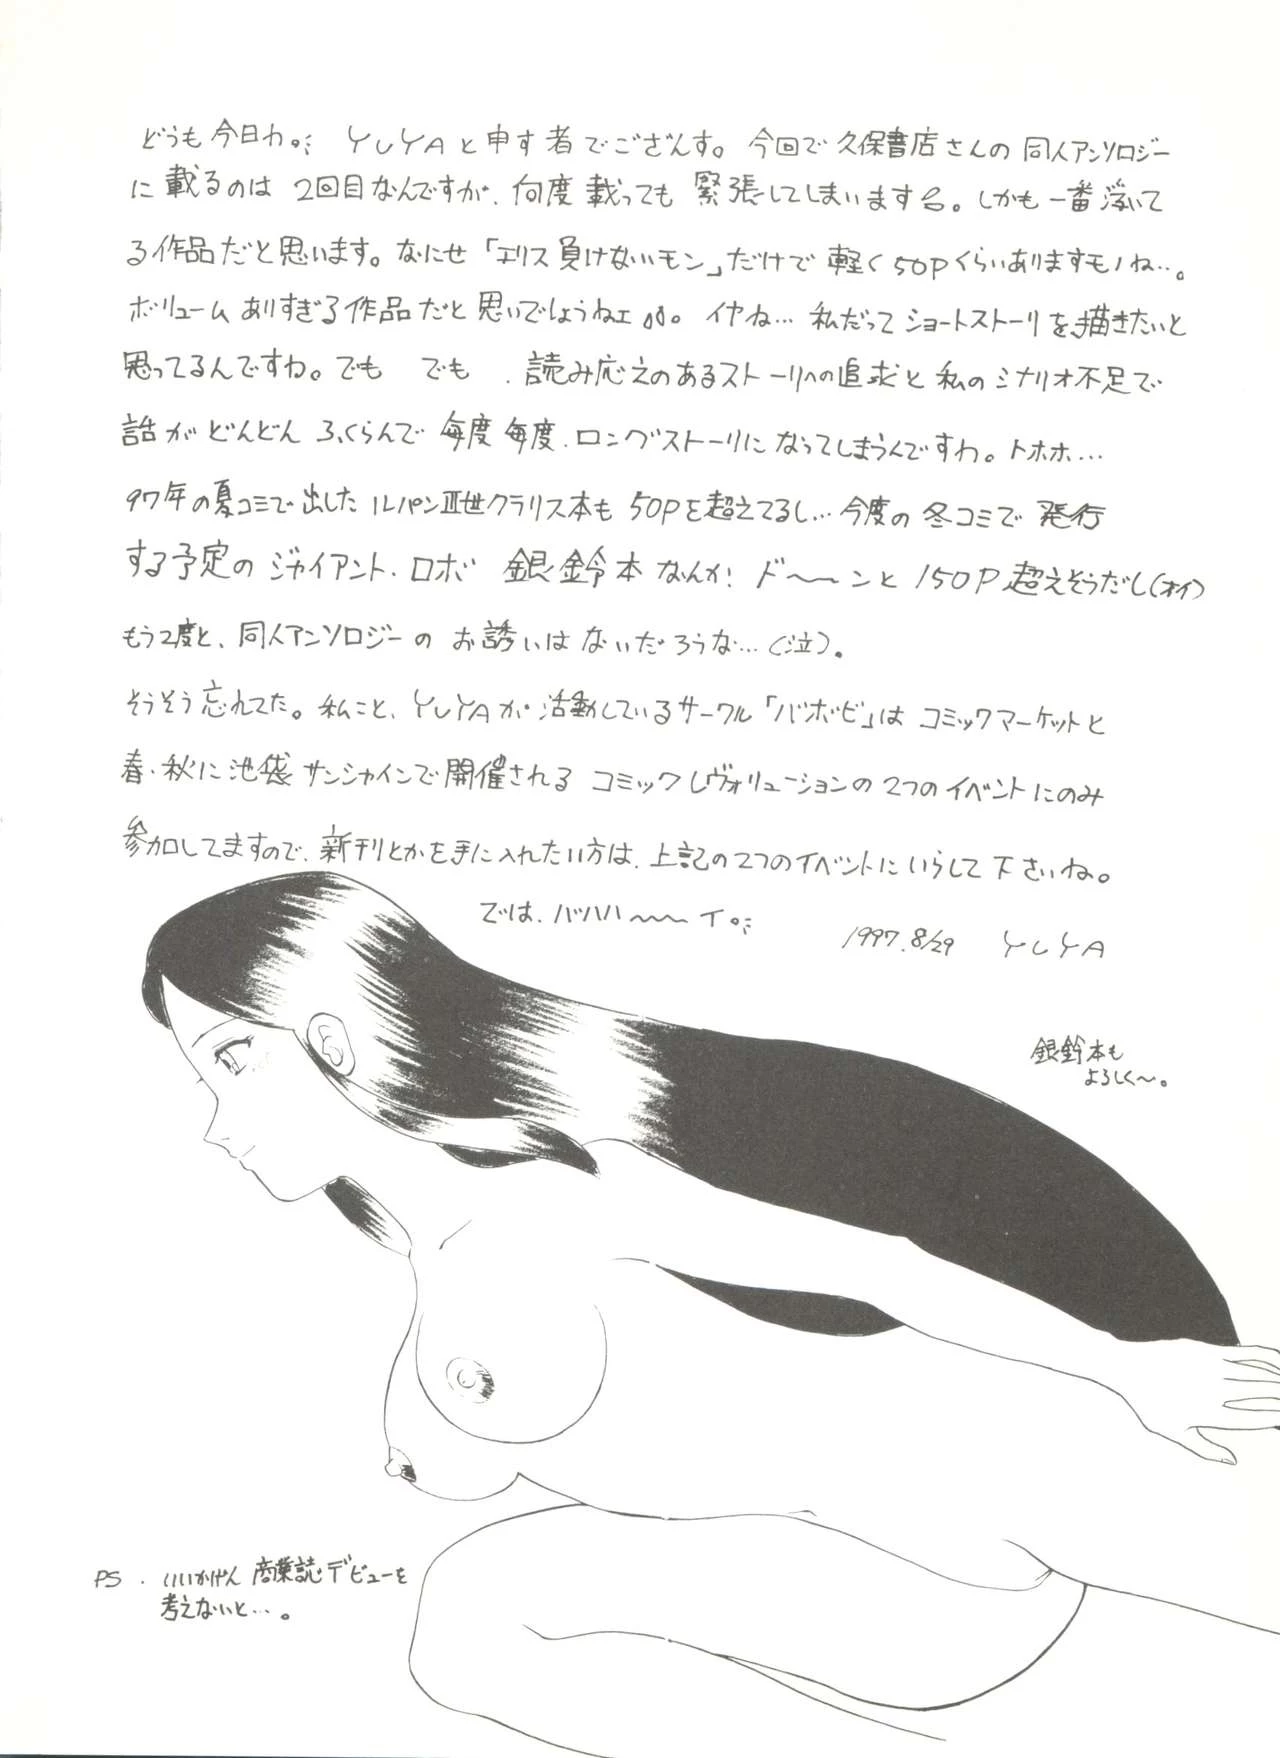 どうも今日わ。 YUYAと申す者でござんす。今回で久保書店さんの同人アンソロジー
に載るのは2回目なんですが、何度載っても緊張してしまいます。しかも一番浮いて
る作品だと思います。なにせ「エリス負けないモン」だけで軽く50Pくらいありますモノね…。
ボリュームありすぎる作品だと思いでしょうねェ。イヤね…私だってショートストーリを描きたいと
思ってるんですわ。でも でも、読み応えのあるストーリへの追求と私のシナリオ不足で
話がどんどんふくらんで毎度毎度、ロングストーリになってしまうんですわ。トホホ…
97年の夏コミで出したルパンⅢ世クラリス本も50Pを超えてるし…今度の冬コミで発行
する予定のジャイアント・ロボ 銀鈴本なんか! ド〜〜ンと150P超えそうだし(オイ)
もう2度と、同人アンソロジーのお誘いはないだろうな…(泣)。
そうそう忘れてた。私こと、YUYAが活動しているサークル「バボビ」はコミックマーケットと
春・秋に池袋サンシャインで開催されるコミックレヴォリューションの2つのイベントにのみ
参加してますので、新刊とかを手に入れたい方は、上記の2つのイベントにいらして下さいね。
では、バハハ〜〜イ。
1997.8/29 YUYA
銀鈴本も
よろしく〜。
PS. いいかげん商業誌デビューを
考えないと…。